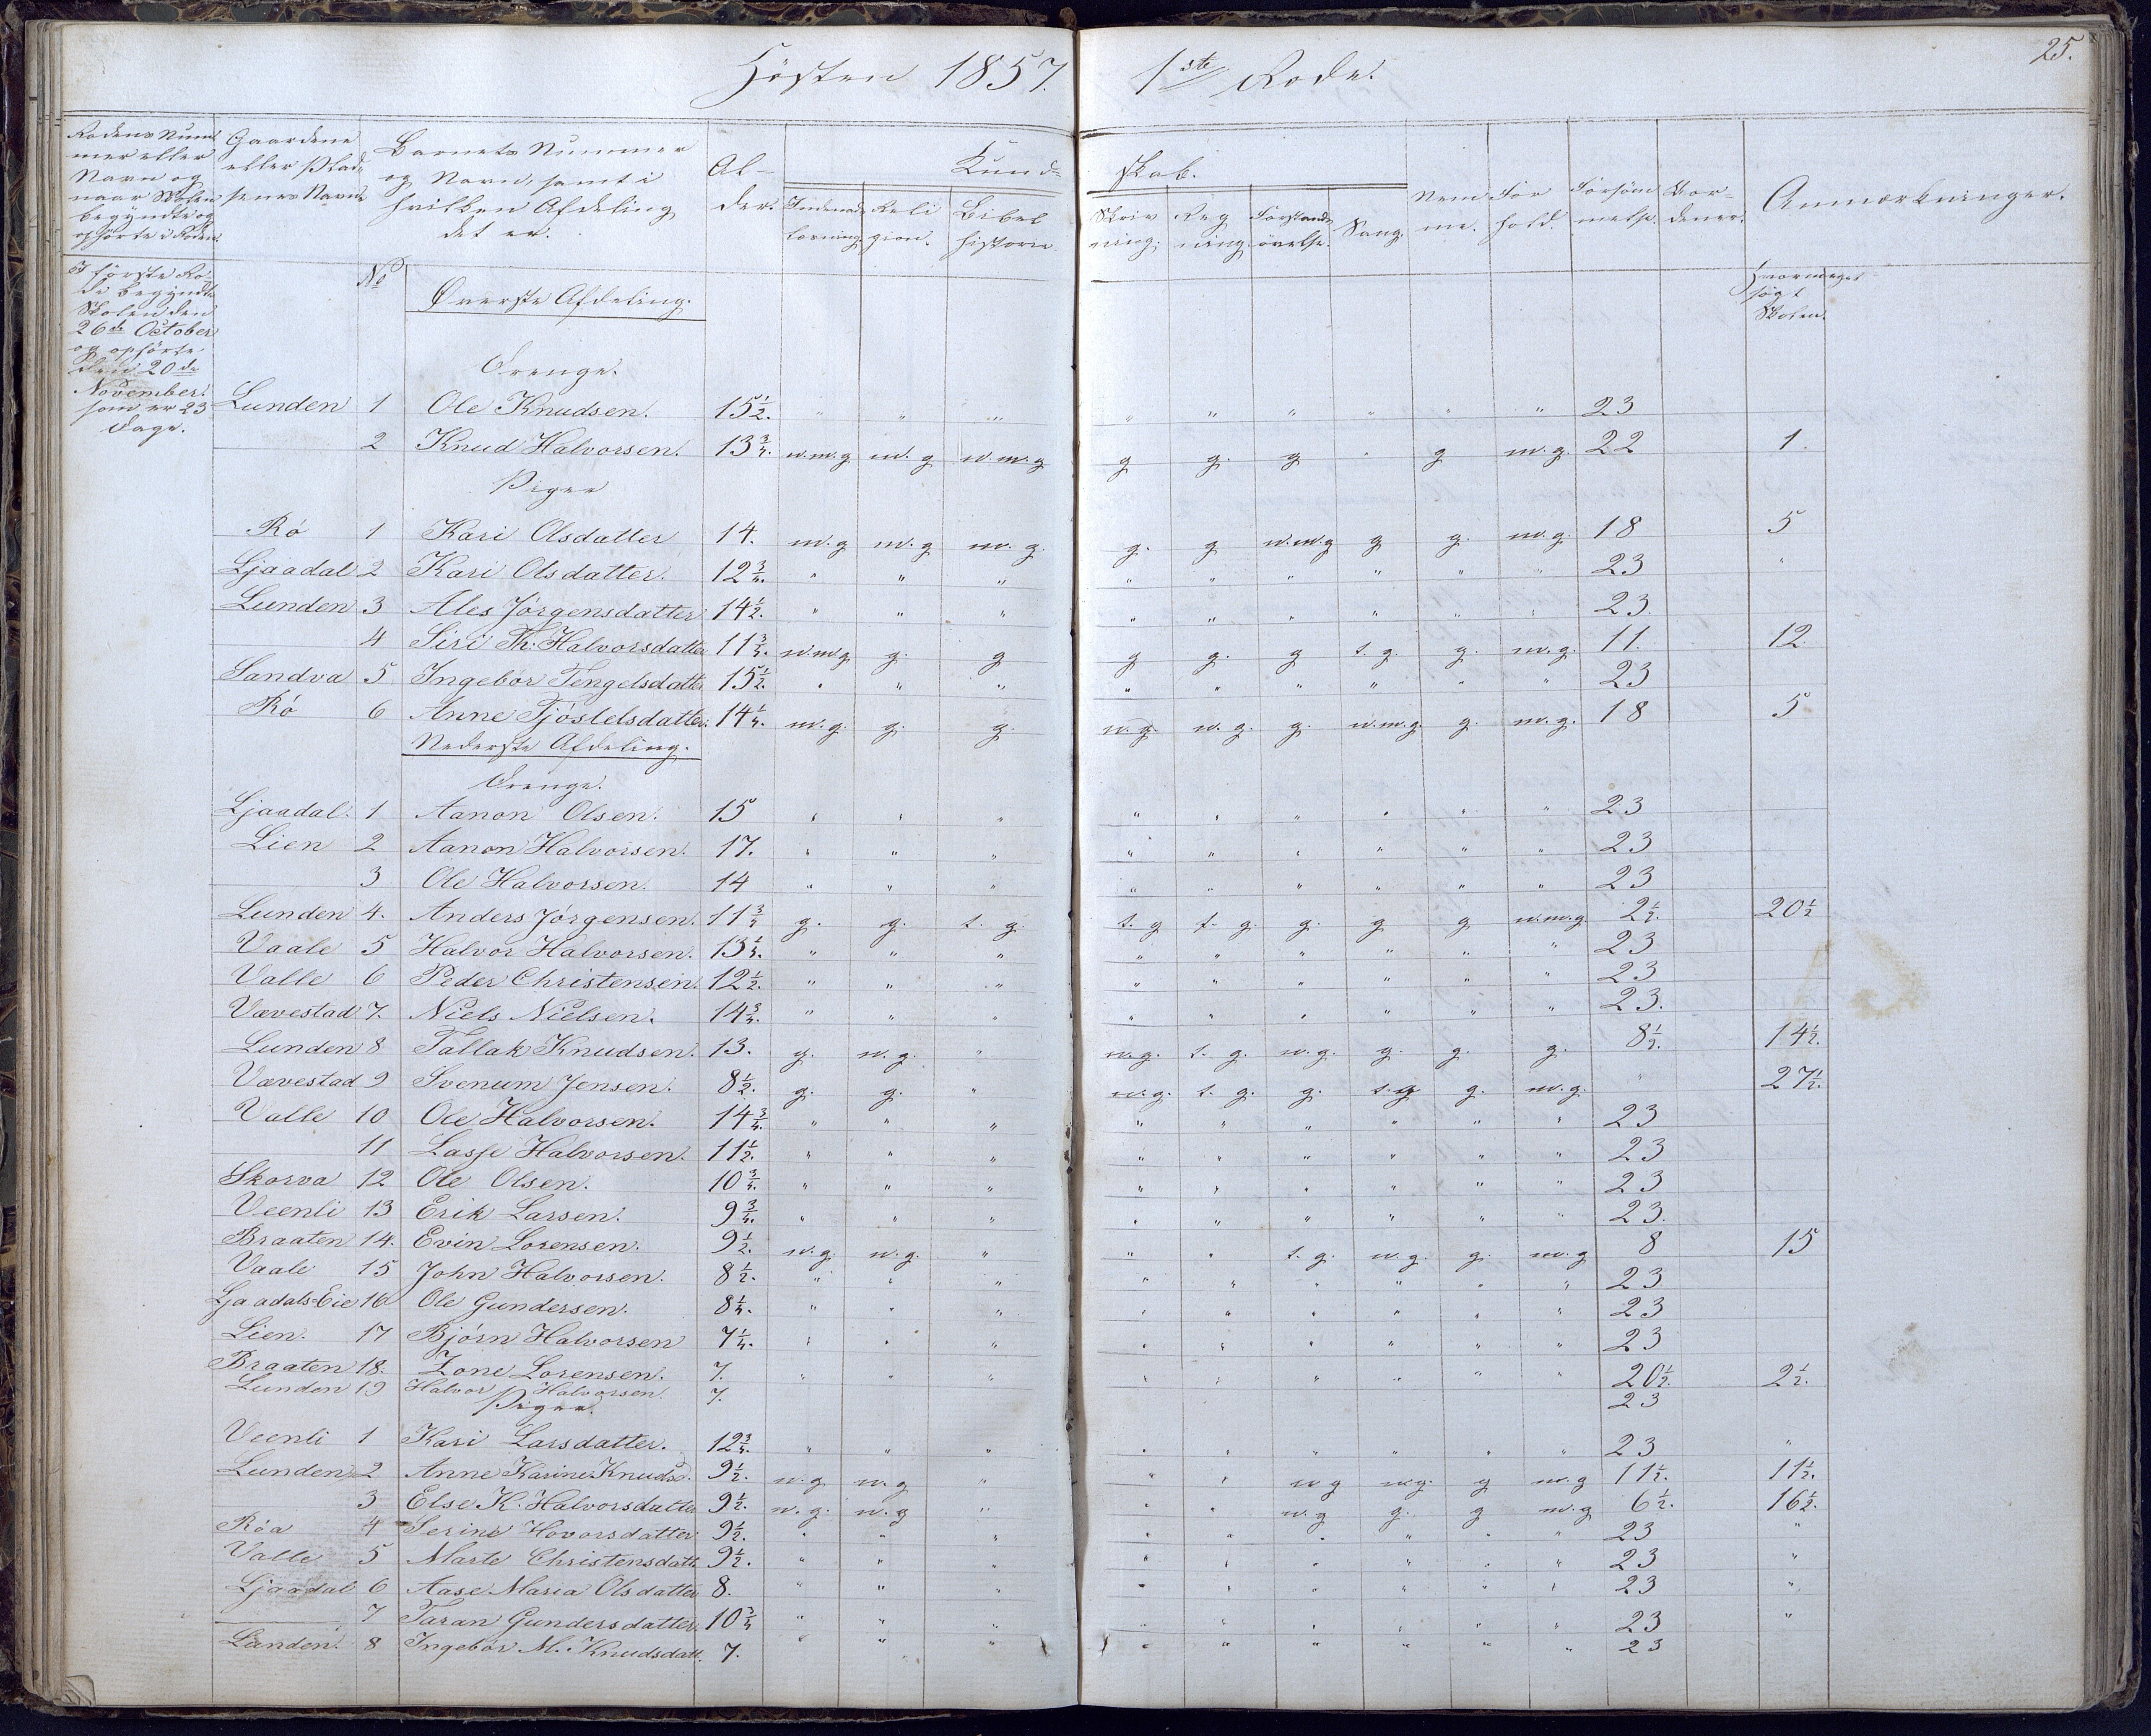 Hösten 1857. 1ste Rode. 25.
Rodens Num-
mer eller
Navn og
naar Skolen
begyndte og
ophörte i Roden.
Gaardene
eller Plad-
senes Navne
Barnets Nummer
og Navn, samt i
hvilken Afdeling
det er.
Al-
der.
Kund-
skab.
Indenads
læsning.
Reli
gion.
Bibel
historie
Skriv
ning.
Reg
ning.
Forstands
övelse.
Sang.
Nem
me.
For
hold.
Forsöm
melse.
Anmærkninger.
I förste Ro-
de begyndte
Skolen den
26de October
og ophörte
den 20de
November
som er 23
Dage.
No
Hvormeget
søgt
Skolen.
Øverste Afdeling.
Drenge.
Lunden 1 Ole Knudsen. 15½. " " " " " " " " " 23
2 Knud Halvorsen. 13¾. n.m.g m.g n.m.g g g. g " g m.g. 22 1.
Piger
Rø 1 Kari Olsdatter 14. m.g m.g m.g. g. g n.m.g g g. m.g. 18 5
Ljaadal 2 Kari Olsdatter. 12¾. " " " " " " " " " 23 "
Lunden 3 Ales Jörgensdatter 14½. " " " " " " " " " 23.
4 Siri Th. Halvorsdatter 11¾. n.m.g. g. g g g. g t.g. g. m.g. 11. 12.
Sandva 5 Ingebor Tengelsdatter 15½. " " " " " " " " " 23
Rø 6 Anne Tjöstelsdatter. 14¼. m.g. g. g. n.g. n.g. g. n.m.g. g. m.g. 18 5
Nederste Afdeling.
Drenge.
Ljaadal. 1 Aanon Olsen. 15 " " " " " " " " " 23
Lien 2 Aanon Halvorsen. 17. " " " " " " " " " 23
3 Ole Halvorsen. 14 " " " " " " " " " 23
Lunden 4. Anders Jörgensen. 11¾ g. g. t.g. t.g t.g. g. g g n.m.g. 2½. 20½
Vaale 5 Halvor Halvorsen. 13¼. " " " " " " " " " 23
Valle 6 Peder Christensen. 12½. " " " " " " " " " 23
Vævestad 7. Niels Nielsen. 14¾. " " " " " " " " " 23.
Lunden 8 Tallak Knudsen. 13. g. n.g. " n.g. t.g. n.g. g. g. g. 8½. 14½.
Vævestad 9 Svenum Jensen. 8½. g. g. " n.g. t.g. g. t.g g. m.g. " 27½.
Valle 10 Ole Halvorsen. 14¾. " " " " " " " " " 23
11 Lasse Halvorsen. 11½. " " " " " " " " " 23
Skorva 12 Ole Olsen. 10¾. " " " " " " " " " 23
Veenli 13 Erik Larsen. 9¾. " " " " " " " " " 23.
Braaten 14. Evin Lorensen. 9½. n.g. n.g. " " " t.g. n.g. g. m.g 8 15
Vaale 15 John Halvorsen. 8½. " " " " " " " " " 23
Ljaadals=Eie 16 Ole Gundersen. 8¼. " " " " " " " " " 23
Lien. 17 Bjørn Halvorsen 7¼. " " " " " " " " " 23
Braaten 18. Zone Lorensen. 7. " " " " " " " " " 20½. 2½.
Lunden 19 Halvor Halvorsen. 7. 23
Piger.
Veenli 1 Kari Larsdatter. 12¾. " " " " " " " " " 23 "
Lunden 2 Anne Karine Knudsd. 9½. n.g n.g " " " n g n.g. g m.g 11½. 11½.
3 Else K. Halvorsdatter 9½. n.g. n.g " " " n.g g. g m.g 6½. 16½.
Røa 4 Serine Hovorsdatter 9½. " " " " " " " " " 23 "
Valle 5 Marte Christensdatt. 9½. " " " " " " " " " 23 "
Ljaadal 6 Aase Maria Olsdatter 8. " " " " " " " " " 23 "
7 Taran Gundersdatter. 10¾ " " " " " " " " " 23 "
Lunden. 8 Ingebor M. Knudsdatt. 7. " " " " " " " " " 23